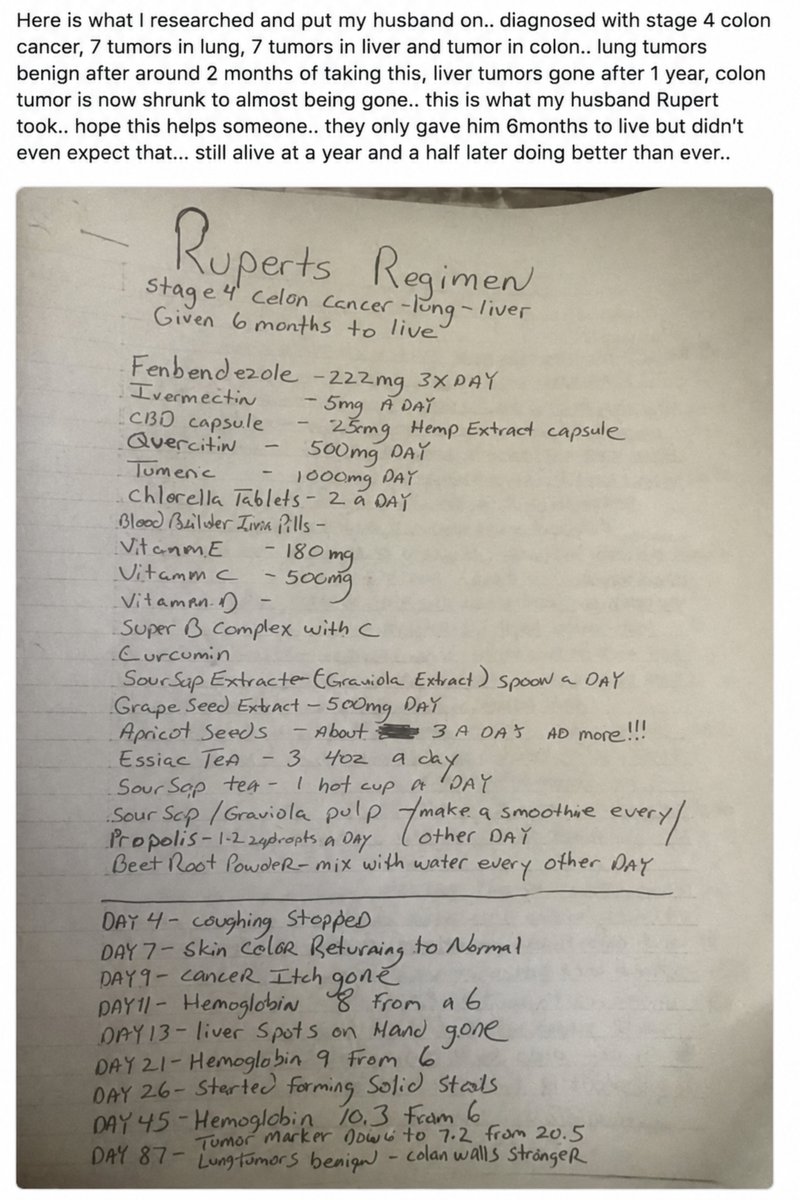 Here is what I researched and put my husband on.. diagnosed with stage 4 colon
cancer, 7 tumors in lung, 7 tumors in liver and tumor in colon.. lung tumors
benign after around 2 months of taking this, liver tumors gone after 1 year, colon
tumor is now shrunk to almost being gone.. this is what my husband Rupert
took.. hope this helps someone.. they only gave him 6months to live but didn't
even expect that... still alive at a year and a half later doing better than ever..
Ruperts Regimen
Stage 4 Celon cancer - lung - liver
Given 6 months to live
Fenbendezole - 222mg 3X DAY
Ivermectin - 5mg A DAY
CBD capsule - 25mg Hemp Extract capsule
Quercitin - 500mg DAY
Tumeric - 1000mg DAY
Chlorella Tablets - 2 a DAY
Blood Builder Pills -
Vitamm E - 180mg
Vitamm C - 500mg
Vitamen D -
Super B Complex with C
Curcumin
Sour Sap Extracte (Graviola Extract) spoon a DAY
Grape Seed Extract - 500mg DAY
Apricot Seeds - About 3 A DAY AD more!!!
Essiac TeA - 3 4oz a day
Sour Sap tea - 1 hot cup a DAY
Sour Sap / Graviola pulp make a smoothie every
Propolis - 1-2 a DAY other DAY
Beet Root PowdeR - mix with water every other DAY
DAY 4 - coughing Stopped
DAY 7 - Skin coloR Returning to Normal
DAY 9 - canceR Itch gone
DAY 11 - Hemoglobin 8 from a 6
DAY 13 - liver Spots on Hand gone
DAY 21 - Hemoglobin 9 from 6
DAY 26 - Started forming Solid Stools
DAY 45 - Hemoglobin 10.3 from 6
Tumor marker Down to 7.2 from 20.5
DAY 87 - Lung tumors benign - colan walls StrongeR